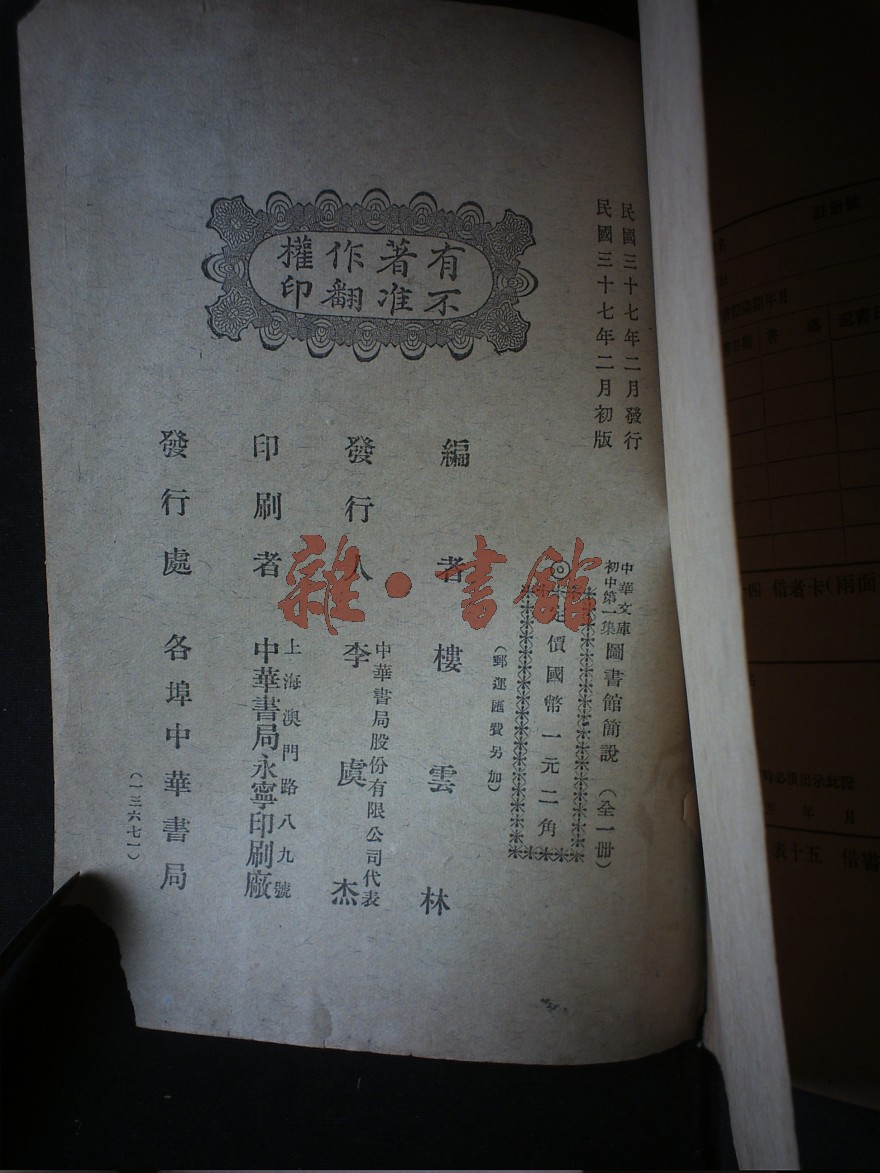 民國三十七年二月發行
民國三十七年二月初版
中華文庫
初中第一集
圖書館簡說
(全一册)
◎定價國幣一元二角
(郵運匯費另加)
有著作權
不准翻印
編者 樓雲林
發行人 李虞杰
中華書局股份有限公司代表
印刷者
上海澳門路八九號
中華書局永寧印刷廠
發行處 各埠中華書局
(一三六七一)
雜·書館
借者卡(兩面)
年 月
表十五